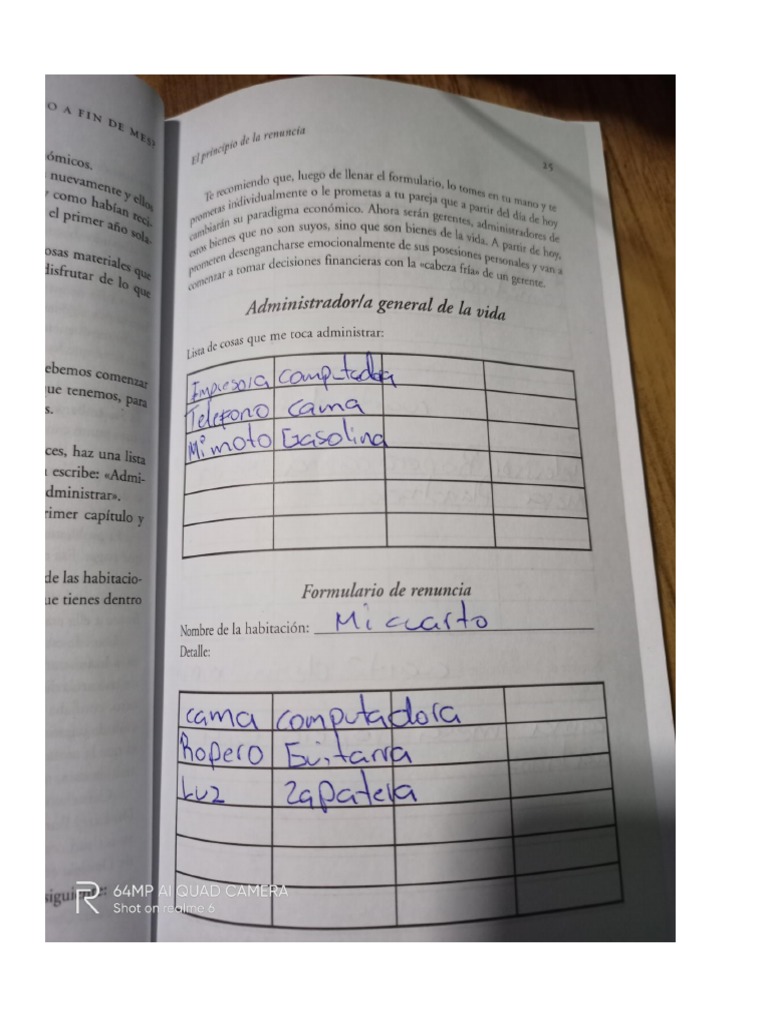 O A FIN DE MES?
ómicos.
nuevamente y ellos
como habían reci-
el primer año sola-
osas materiales que
disfrutar de lo que
ebemos comenzar
ue tenemos, para
s.
ces, haz una lista
escribe: «Admi-
dministrar».
rimer capítulo y
de las habitacio-
ue tienes dentro
siguiente:
El principio de la renuncia
25
Te recomiendo que, luego de llenar el formulario, lo tomes en tu mano y te
prometas individualmente o le prometas a tu pareja que a partir del día de hoy
cambiarán su paradigma económico. Ahora serán gerentes, administradores de
estos bienes que no son suyos, sino que son bienes de la vida. A partir de hoy,
prometen desengancharse emocionalmente de sus posesiones personales y van a
comenzar a tomar decisiones financieras con la «cabeza fría» de un gerente.
Administrador/a general de la vida
Lista de cosas que me toca administrar:
Impresora computadora
Telefono cama
Mi moto Gasolina
Formulario de renuncia
Nombre de la habitación: Mi cuarto
Detalle:
cama computadora
Ropero Guitarra
Luz Zapatera
R 64MP AI QUAD CAMERA
Shot on realme 6